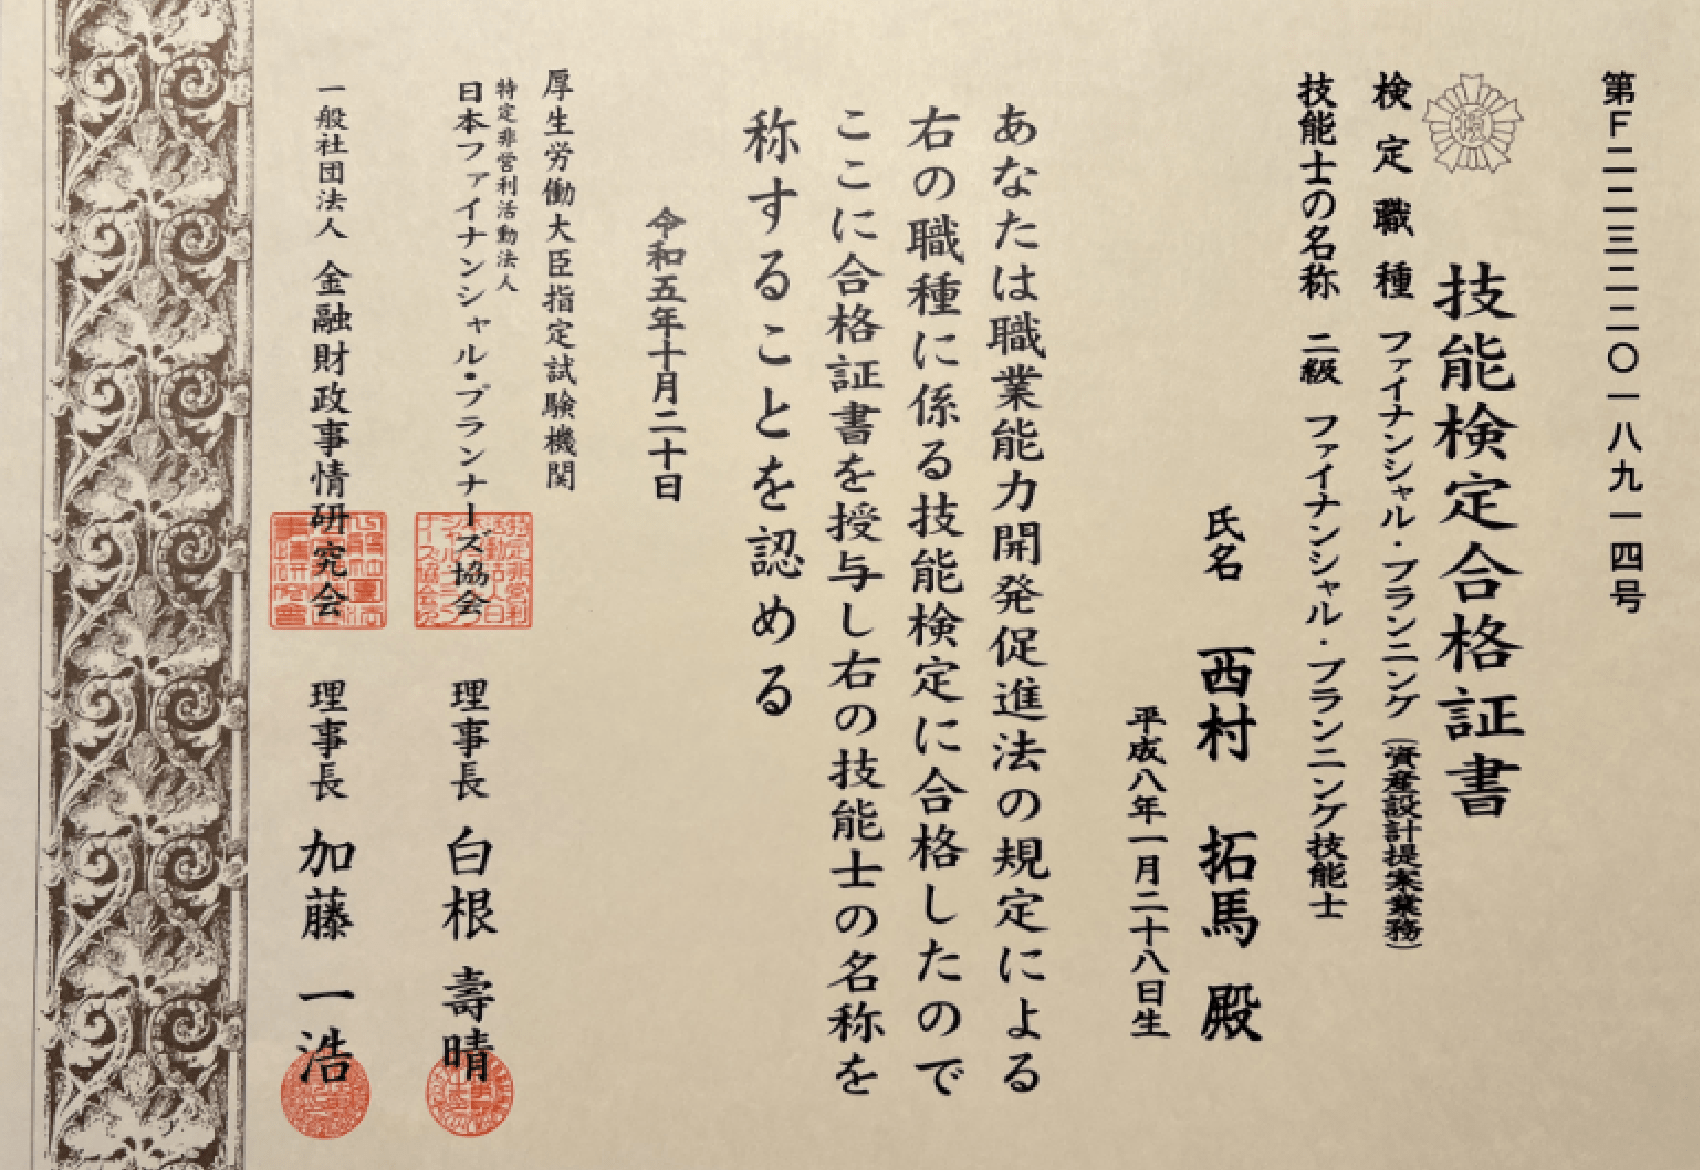 第F二二三二二〇一八九一四号
技能検定合格証書
検定職種 ファイナンシャル・プランニング(資産設計提案業務)
技能士の名称 二級 ファイナンシャル・プランニング技能士
氏名 西村 拓馬 殿
平成八年一月二十八日生
あなたは職業能力開発促進法の規定による
右の職種に係る技能検定に合格したので
ここに合格証書を授与し右の技能士の名称を
称することを認める
令和五年十月二十日
厚生労働大臣指定試験機関
特定非営利活動法人
日本ファイナンシャル・プランナーズ協会 理事長 白根 壽晴
一般社団法人 金融財政事情研究会 理事長 加藤 一浩